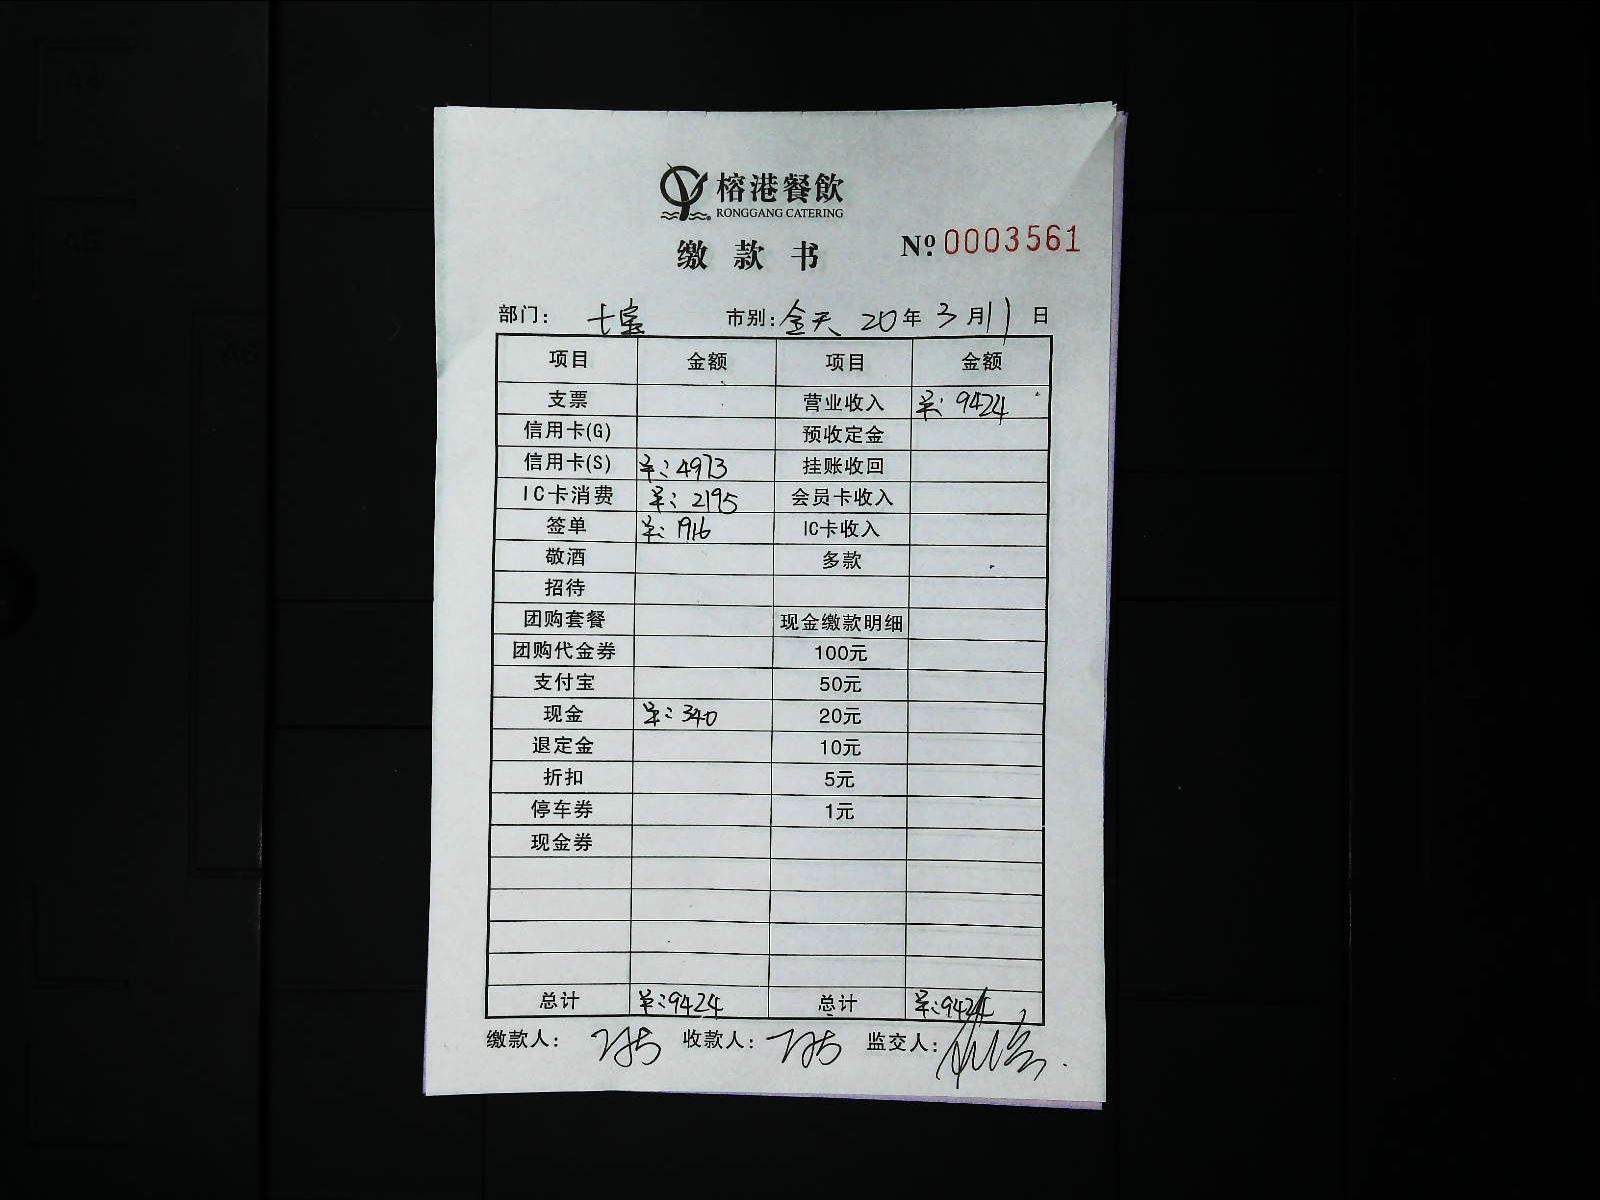 榕港餐飲
RONGGANG CATERING
缴款书 № 0003561
部门： 七宝 市别：全天 20年3月11日
项目 金额 项目 金额
支票 营业收入 ¥：9424
信用卡(G) 预收定金
信用卡(S) ¥：4973 挂账收回
IC卡消费 ¥：2195 会员卡收入
签单 ¥：1916 IC卡收入
敬酒 多款
招待
团购套餐 现金缴款明细
团购代金券 100元
支付宝 50元
现金 ¥：340 20元
退定金 10元
折扣 5元
停车券 1元
现金券
总计 ¥：9424 总计 ¥：9424
缴款人： 收款人： 监交人：